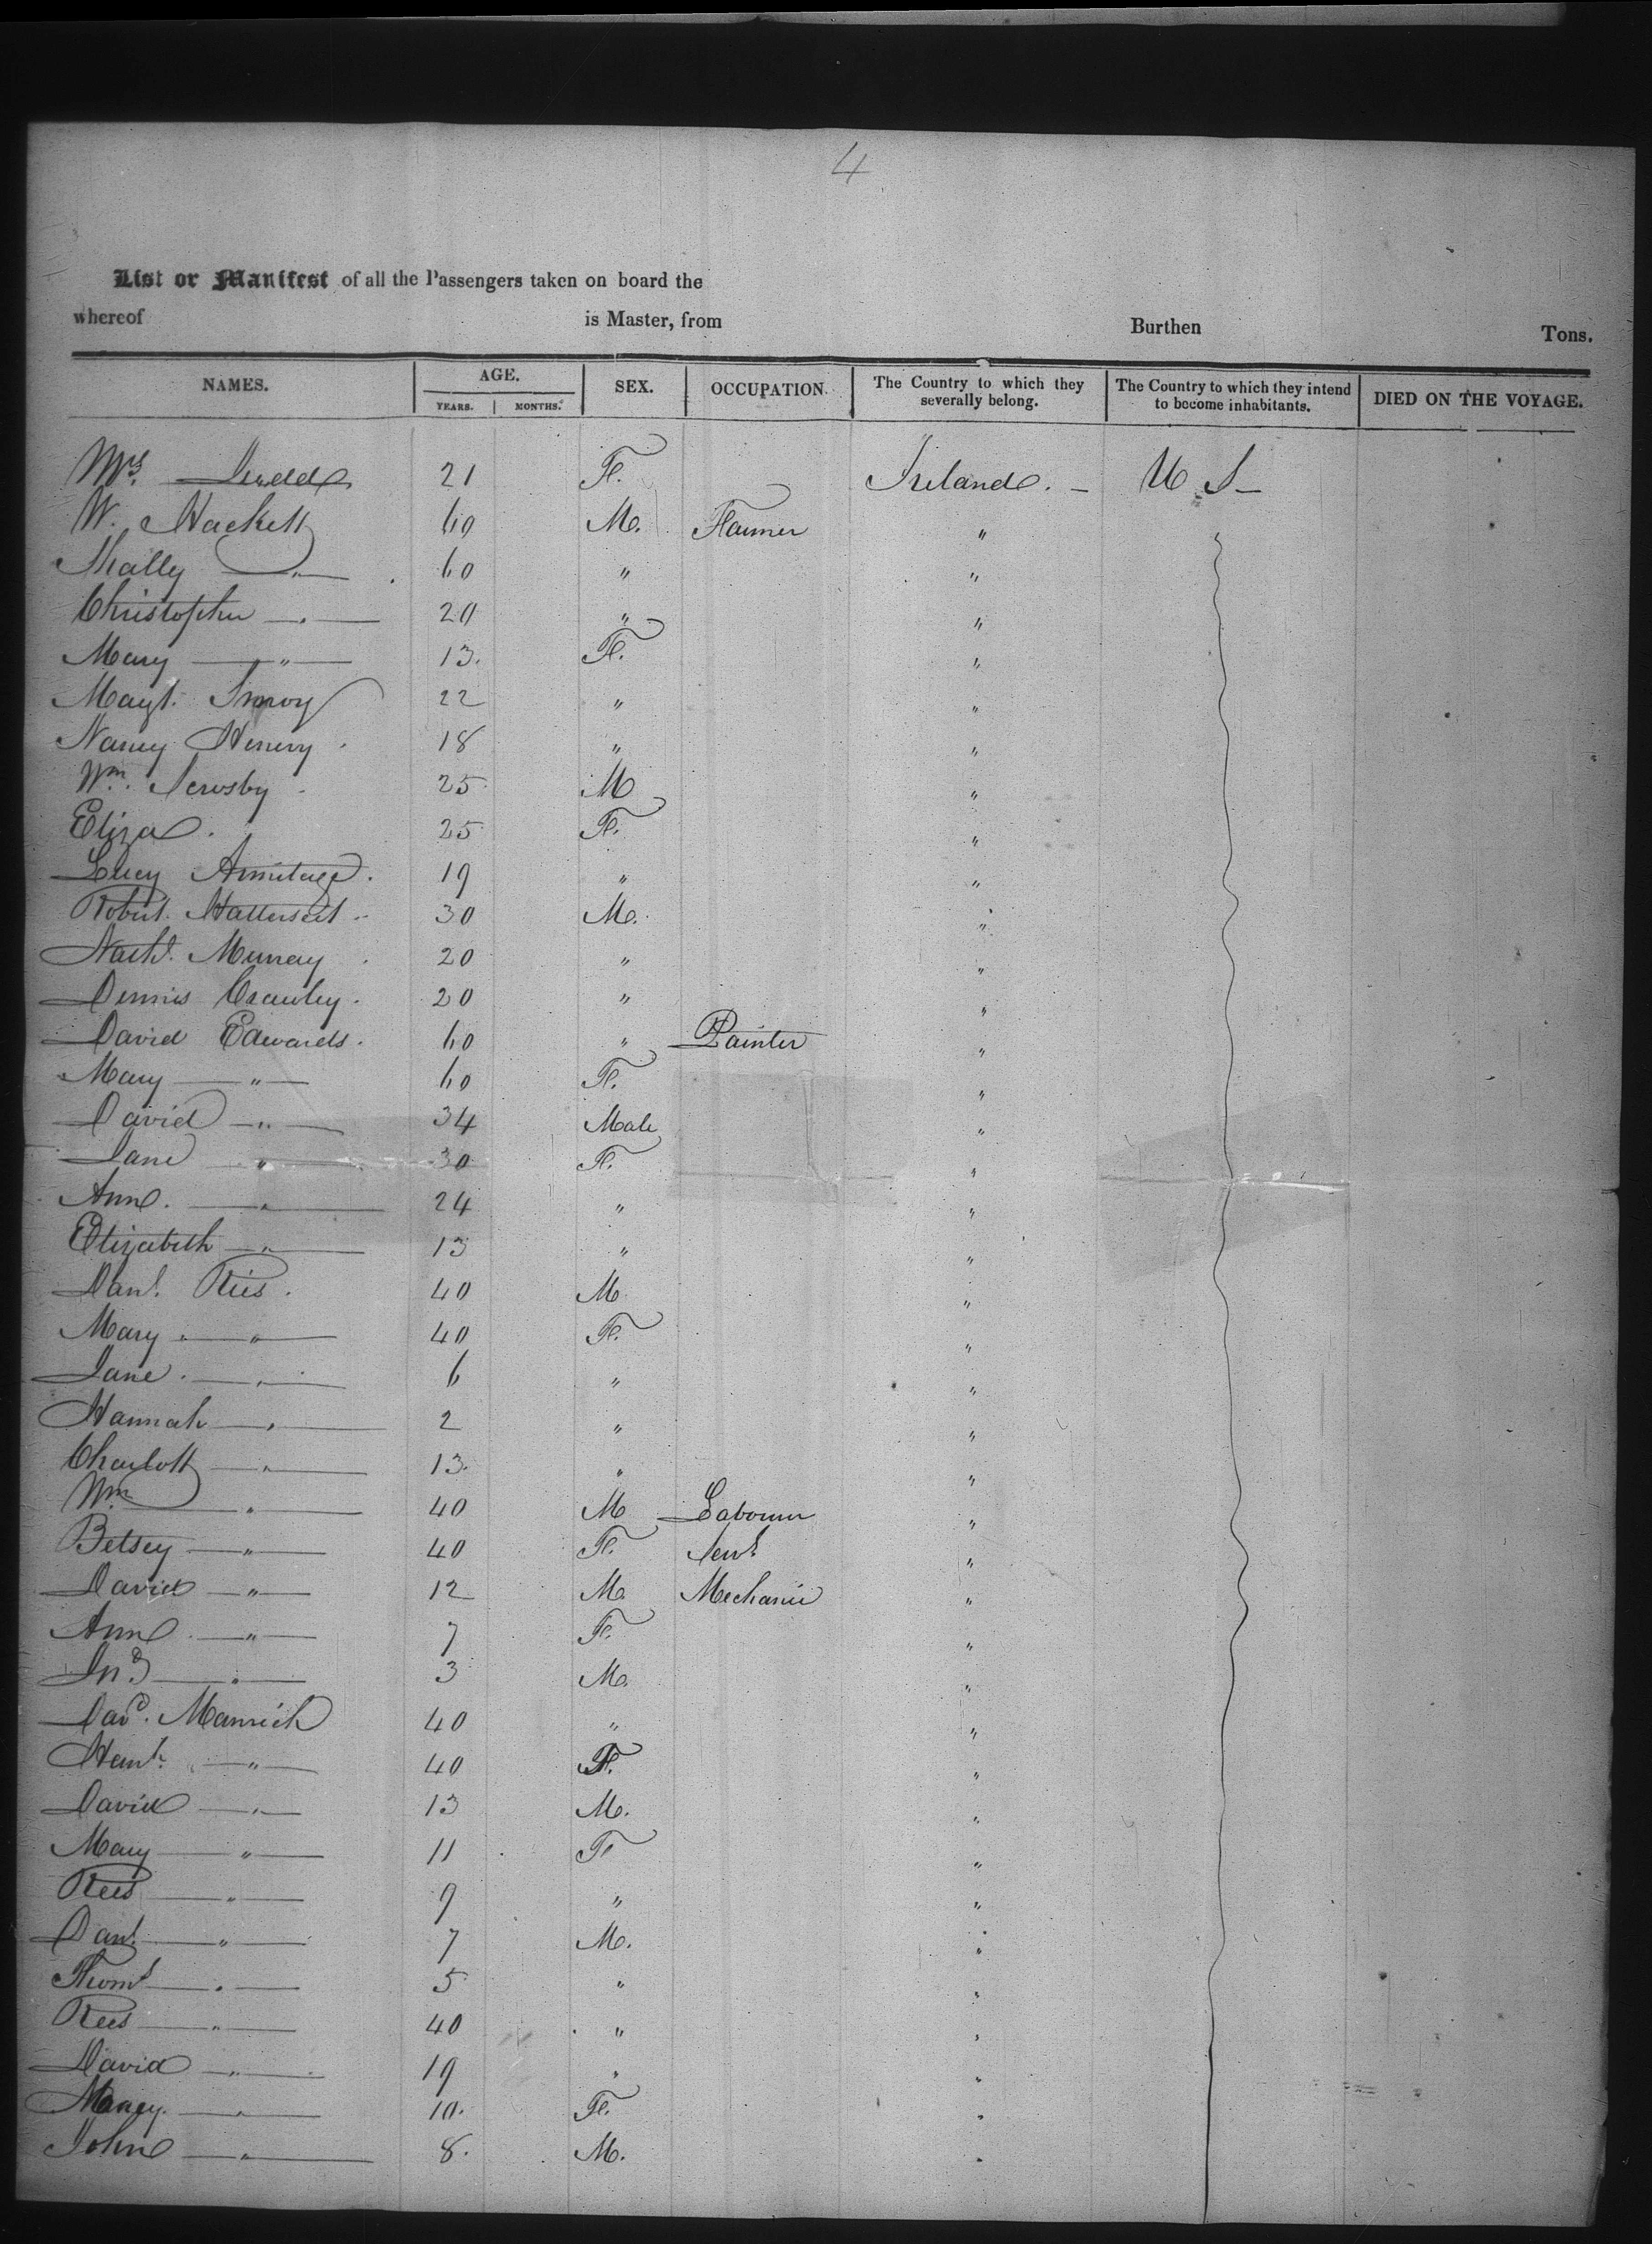 4
List or Manifest of all the Passengers taken on board the
whereof is Master, from Burthen Tons.
NAMES. AGE. SEX. OCCUPATION. The Country to which they severally belong. The Country to which they intend to become inhabitants. DIED ON THE VOYAGE.
YEARS. MONTHS.
Mrs. 21 F. Ireland. - U S -
W. Hackett 60 M. Farmer "
" 60 " "
Christopher " 20 " "
Mary " 13. F. "
Magt. 22 " "
Nancy Henery 18 " "
Wm. 25 M "
Eliza. 25 F. "
Lucy Armitage. 19 " "
Robert. 30 M. "
Murray 20 " "
Dennis Crawley. 20 " "
David Edwards. 60 " Painter "
Mary " 60 F. "
David " 34 Male "
Jane " 30 F. "
Ann. " 24 " "
Elizabeth " 13 " "
Danl. Rees. 40 M "
Mary " 40 F. "
Jane. " 6 " "
Hannah " 2 " "
Charlott " 13. " "
Wm " 40 M Labourer "
Betsey " 40 F. Servt. "
David " 12 M. Mechanic "
Ann " 7 F. "
Jno " 3 M. "
Davd. 40 " "
Hanh. " 40 F. "
David " 13 M. "
Mary " 11 F "
Rees " 9 " "
Danl. " 7 M. "
Thoms " 5 " "
Rees " 40 " "
David " 19 " "
" 10. F. "
John " 8. M. "